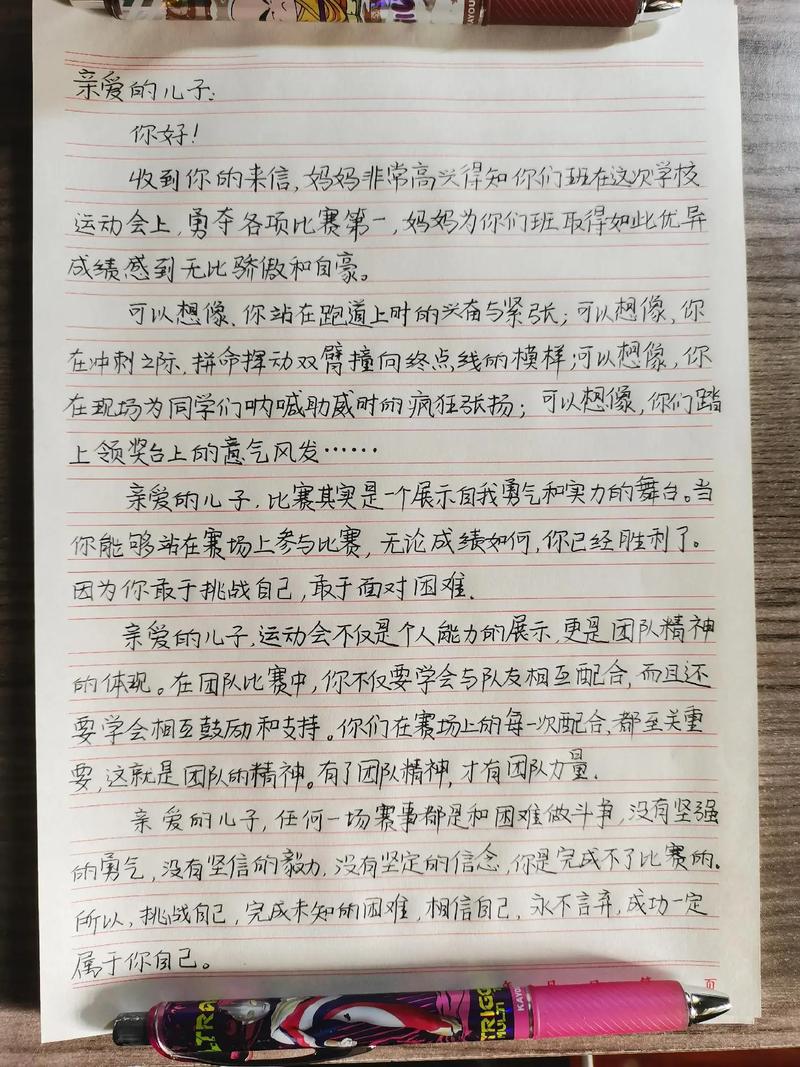 KAYOU
亲爱的儿子:
你好!
收到你的来信,妈妈非常高兴得知你们班在这次学校
运动会上,勇夺各项比赛第一,妈妈为你们班取得如此优异
成绩感到无比骄傲和自豪。
可以想像、你站在跑道上时的兴奋与紧张;可以想像,你
在冲刺之际、拼命挥动双臂撞向终点线的模样;可以想像,你
在现场为同学们呐喊助威时的疯狂张扬;可以想像,你们踏
上领奖台上的意气风发……
亲爱的儿子,比赛其实是一个展示自我勇气和实力的舞台。当
你能够站在赛场上参与比赛,无论成绩如何,你已经胜利了。
因为你敢于挑战自己,敢于面对困难.
亲爱的儿子,运动会不仅是个人能力的展示,更是团队精神
的体现。在团队比赛中,你不仅要学会与队友相互配合,而且还
要学会相互鼓励和支持。你们在赛场上的每一次配合,都至关重
要,这就是团队的精神。有了团队精神,才有团队力量.
亲爱的儿子,任何一场赛事都是和困难做斗争,没有坚强
的勇气,没有坚信的毅力,没有坚定的信念,你是完成不了比赛的.
所以,挑战自己,完成未知的困难,相信自己,永不言弃,成功一定
属于你自己。
页
TRIGG
MULTI
KAYOU